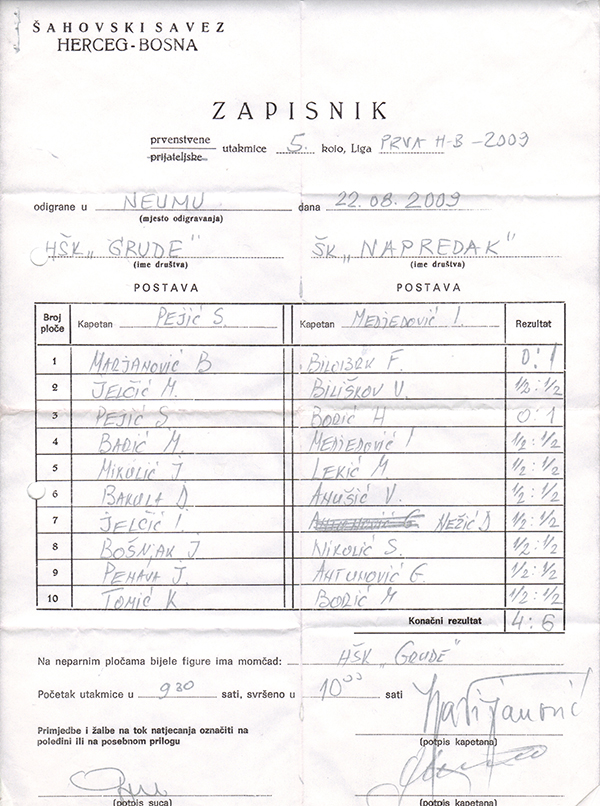 ŠAHOVSKI SAVEZ
HERCEG-BOSNA
ZAPISNIK
prvenstvene
prijateljske
utakmice 5. kolo, Liga PRVA H-B - 2009
odigrane u NEUMU dana 22.08.2009
(mjesto odigravanja)
HŠK „GRUDE" ŠK „NAPREDAK"
(ime društva) (ime društva)
POSTAVA POSTAVA
Broj ploče Kapetan PEJIĆ S. Kapetan MEDJEDOVIĆ I. Rezultat
1 MARJANOVIĆ B F. 0:1
2 JELČIĆ M. BILIŠKOV V. 1/2:1/2
3 PEJIĆ S BODIĆ H 0:1
4 BABIĆ M. MEDJEDOVIĆ I 1/2:1/2
5 MIKULIĆ J LEKIĆ M. 1/2:1/2
6 BAKULA D ANUŠIĆ V. 1/2:1/2
7 JELČIĆ I. NEŽIĆ D 1/2:1/2
8 BOŠNJAK J NIKOLIĆ S. 1/2:1/2
9 PENAVA J. ANTUNOVIĆ G. 1/2:1/2
10 TOMIĆ K BODIĆ M 1/2:1/2
Konačni rezultat 4:6
Na neparnim pločama bijele figure ima momčad: HŠK „GRUDE"
Početak utakmice u 9 30 sati, svršeno u 10 00 sati
Primjedbe i žalbe na tok natjecanja označiti na
poledini ili na posebnom prilogu
(potpis kapetana)
(potpis suca) (potpis kapetana)